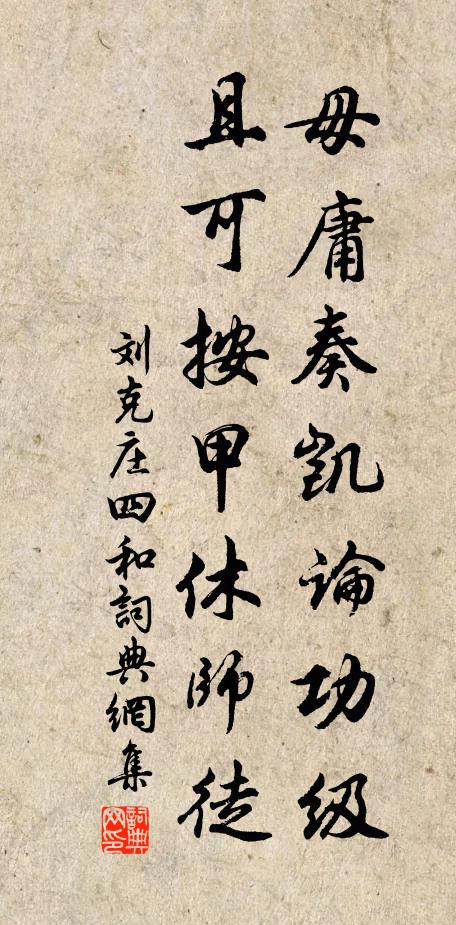 毋庸奏凯論功级
且可按甲休師徒
刘克庄四和詞典網集
詞典网印